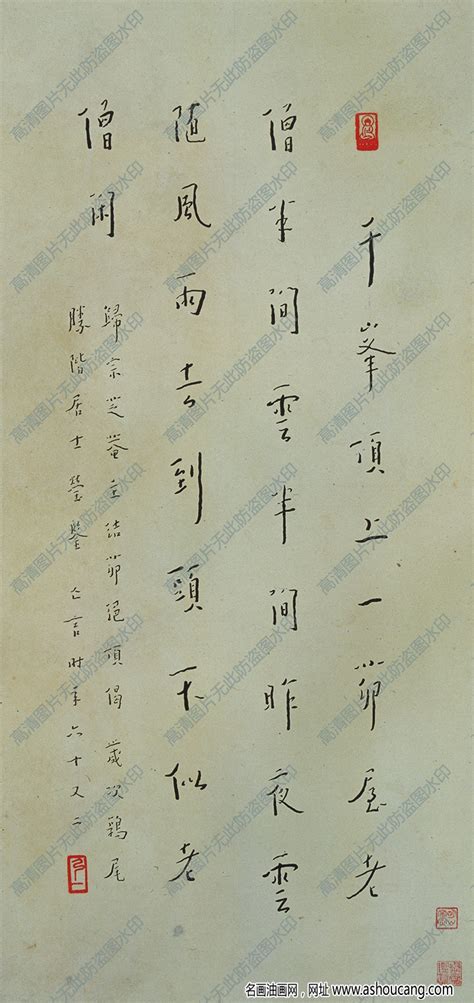 千峯頂上一茆屋老
僧半間雲半間昨夜雲
随風雨去到頭不似老
僧閑
歸宗芝菴主結茆絕頂偈歲次鶉尾
勝階居士瑩鑒亡言時年六十又二
高清图片无此防盗图水印
名画油画网，网址 www.ashoucang.com